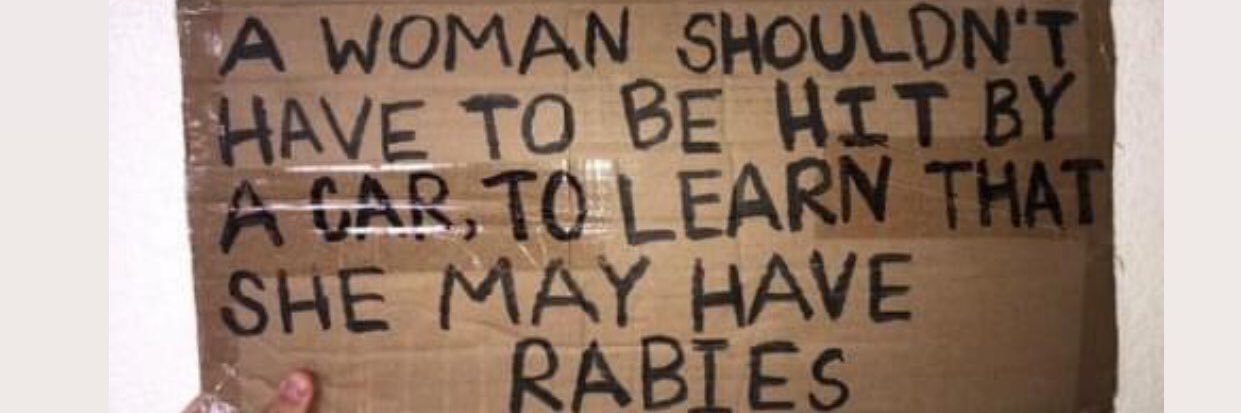 A WOMAN SHOULDN'T
HAVE TO BE HIT BY
A CAR, TO LEARN THAT
SHE MAY HAVE
RABIES